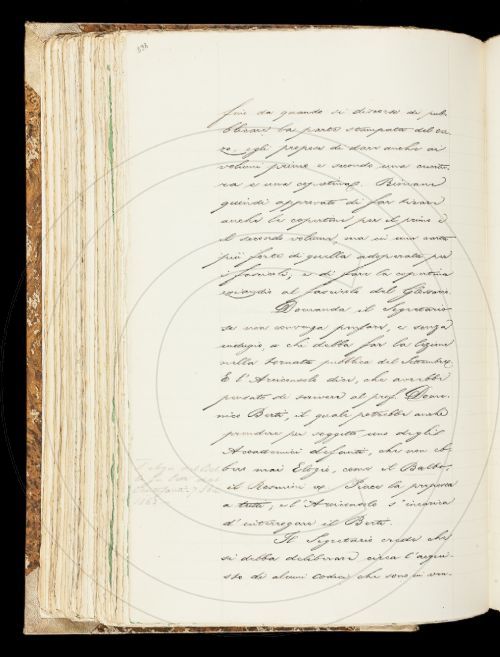 fino da quando si discorse di pub-
blicare la parte stampata del
egli propose di dare anche ai
volumi primo e secondo una
e una copertina. Rimane
quindi approvato di far
anche le copertine per il primo e
il secondo volume, ma in una carta
più forte di quella adoperata pei
fascicoli, e di fare la copertina
eziandio al fascicolo del Glossario.
Domanda il Segretario
se non convenga pensare, e senza
indugio, a chi debba far la lezione
nella tornata pubblica del Settembre.
E l'Arciconsolo dice, che avrebbe
pensato di scrivere al prof. Dome-
nico Berti, il quale potrebbe anche
prendere per soggetto uno degli
Accademici defunti, che non eb-
bero mai Elogio, come il Balbo,
il Rosmini ec. Piace la proposta
a tutti, e l'Arciconsolo s'incarica
d'interrogare il Berti.
Il Segretario crede che
si debba deliberare circa l'acqui-
sto di alcuni Codici che sono in